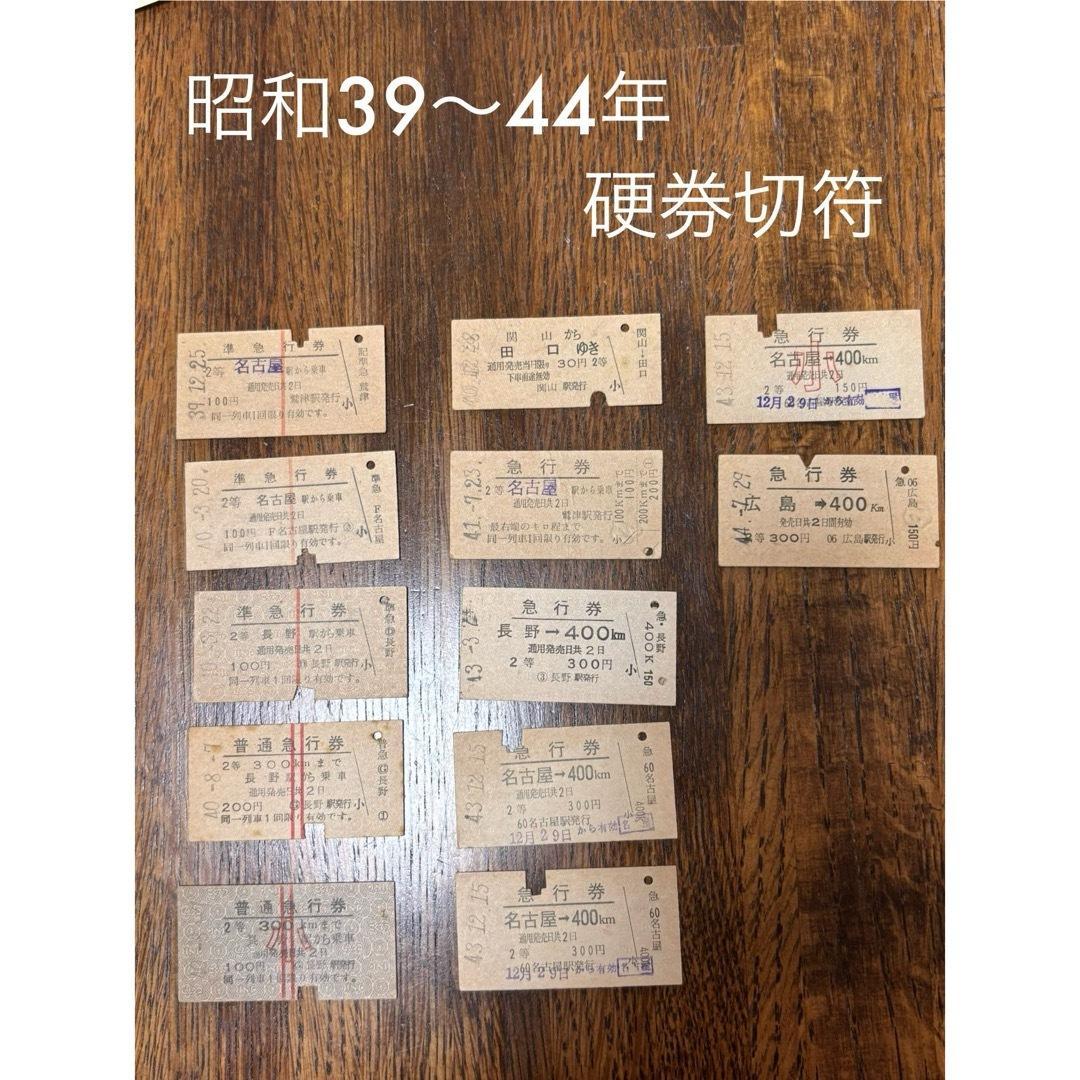 昭和39〜44年
硬券切符
39.12.25
準急行券
2等 名古屋 駅から乗車
通用発売日共2日
100円 鷲津駅発行
同一列車1回限り有効です。
小
記準急 鷲津
準急行券
2等 名古屋 駅から乗車
通用発売日共2日
100円 F名古屋駅発行 ②
同一列車1回限り有効です。
小
準急 F名古屋
準急行券
2等 長野 駅から乗車
通用発売日共2日
100円 長野駅発行
同一列車1回限り有効です。
小
40-8.-7
普通急行券
2等 300kmまで
長野駅から乗車
通用発売日共2日
200円 長野駅発行
同一列車1回限り有効です。
小
普急 G長野 ①
普通急行券
2等 300kmまで
駅から乗車
通用発売日共2日
100円
同一列車1回限り有効です。
小
関山から
田口ゆき
通用発売当日限り 30円 2等
下車前途無効
関山 駅発行
小
関山→田口
41.-7.23
急行券
2等 名古屋 駅から乗車
通用発売日共2日
鷲津駅発行
最右端のキロ程まで
小
100Kmまで 100円
200Kmまで 200円
急行券
長野→400km
通用発売日共2日
2等 300円
③長野駅発行
小
急・長野
400K 150
43.12.15
急行券
名古屋→400km
通用発売日共2日
2等 300円
60名古屋駅発行
12月29日から有効
小
急 60名古屋
43.12.15
急行券
名古屋→400km
通用発売日共2日
2等 300円
60名古屋駅発行
12月29日から有効
急 60名古屋
43.12.15
急行券
名古屋→400km
通用発売日共2日
2等 150円
12月29日から有効
小
急行券
広島→400Km
発売日共2日間有効
2等 300円 06広島駅発行
小
急 06広島
150円